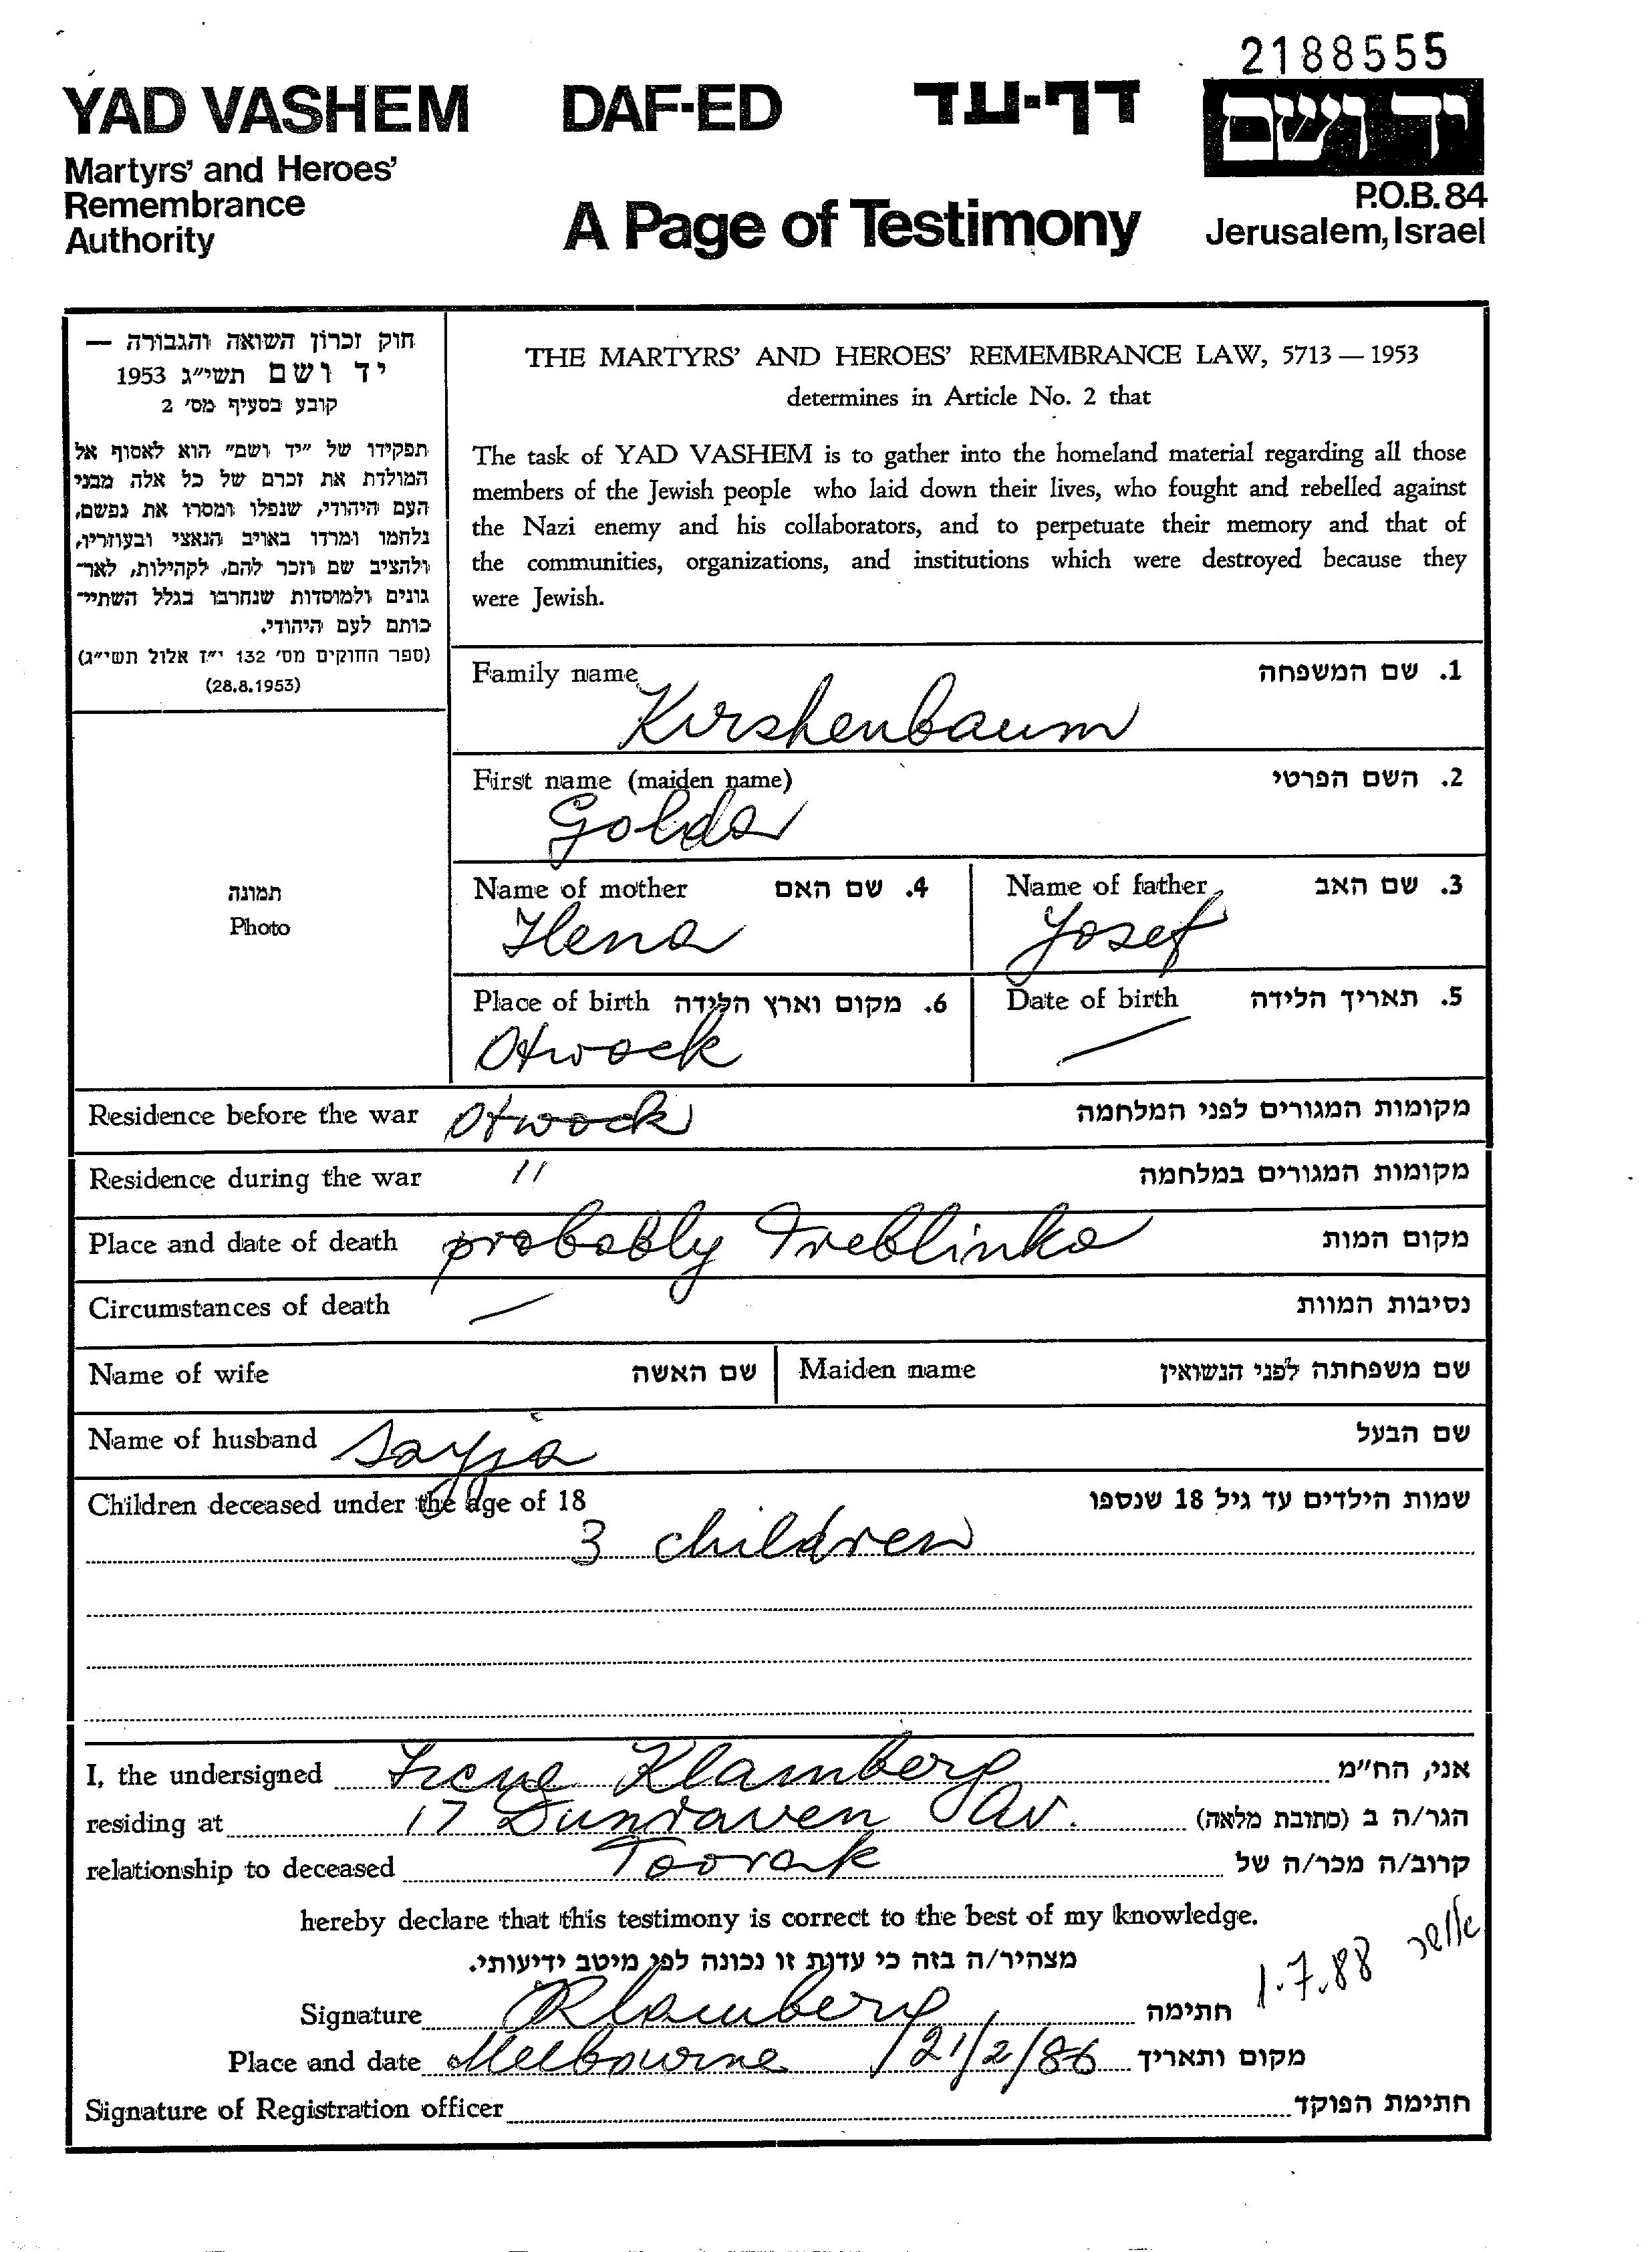 2188555
YAD VASHEM DAF-ED דף-עד יד ושם
Martyrs' and Heroes'
Remembrance
Authority
A Page of Testimony
P.O.B. 84
Jerusalem, Israel
חוק זכרון השואה והגבורה —
יד ושם תשי״ג 1953
קובע בסעיף מס׳ 2
תפקידו של ״יד ושם״ הוא לאסוף אל
המולדת את זכרם של כל אלה מבני
העם היהודי, שנפלו ומסרו את נפשם,
נלחמו ומרדו באויב הנאצי ובעוזריו,
ולהציב שם וזכר להם, לקהילות, לאר־
גונים ולמוסדות שנחרבו בגלל השתיי־
כותם לעם היהודי.
(ספר החוקים מס׳ 132 י״ז אלול תשי״ג)
(28.8.1953)
THE MARTYRS' AND HEROES' REMEMBRANCE LAW, 5713 — 1953
determines in Article No. 2 that
The task of YAD VASHEM is to gather into the homeland material regarding all those
members of the Jewish people who laid down their lives, who fought and rebelled against
the Nazi enemy and his collaborators, and to perpetuate their memory and that of
the communities, organizations, and institutions which were destroyed because they
were Jewish.
תמונה
Photo
Family name 1. שם המשפחה
Kirshenbaum
First name (maiden name) 2. השם הפרטי
Golda
Name of mother 4. שם האם
Hena
Name of father 3. שם האב
Josef
Place of birth 6. מקום וארץ הלידה
Otwock
Date of birth 5. תאריך הלידה
—
Residence before the war Otwock מקומות המגורים לפני המלחמה
Residence during the war 11 מקומות המגורים במלחמה
Place and date of death probably Treblinka מקום המות
Circumstances of death — נסיבות המוות
Name of wife שם האשה Maiden name שם משפחתה לפני הנשואין
Name of husband שם הבעל
Children deceased under the age of 18 שמות הילדים עד גיל 18 שנספו
3 children
I, the undersigned Irene Klamberg אני, הח״מ
residing at 17 Dunraven Av. הגר/ה ב (כתובת מלאה)
relationship to deceased Toorak קרוב/ה מכר/ה של
hereby declare that this testimony is correct to the best of my knowledge.
מצהיר/ה בזה כי עדות זו נכונה לפי מיטב ידיעותי.
1.7.88
Signature Klamberg חתימה
Place and date Melbourne 21/2/86 מקום ותאריך
Signature of Registration officer חתימת הפוקד